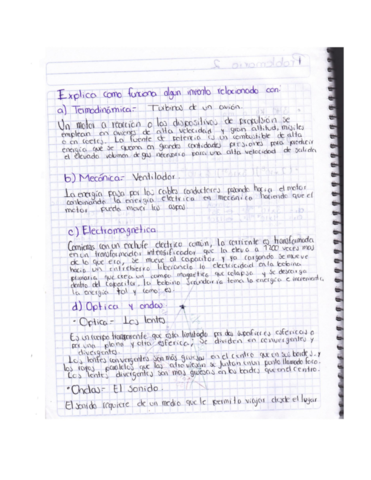 Explica como funciona algun invento relacionado con:
a) Termodinámica:- Turbinas de un avión.
Un motor a reacción o los dispositivos de propulsión se
emplean en aviones de alta velocidad y gran altitud, misiles
o en coetes. La fuente de potencia es un combustible de alta
energia que se quema en grandes cantidades presiones para producir
el elevado volumen de gas necesario para una alta velocidad de salida.
b) Mecánica:- Ventilador.
La energia pasa por los cables conductores hacia el motor
la energia electrica en mecanica haciendo que el
motor pueda mover las aspas.
c) Electromagnetica
Comienza con un enchufe electrico común, la corriente es transformada
en un transformador intensificador que la eleva a veces mas
de lo que era, se mueve al capacitor y ya cargando se mueve
hacia un liberando la electricidad en la bobina
primaria que crea un campo magnetico que colapsa y se descarga
dentro del capacitor, la bobina secundaria toma la energia e incrementa
la energia total y como es.
d) Optica y ondas
• Optica:- Los lentes.
Es un cuerpo transparente que esta limitado por dos superficies esfericas o
por una plana y otra esferica, se dividen en convergentes y
divergentes.
Los lentes convergentes son más gruesas en el centro que en sus bordes, y
los rayos paralelos que las atraviesan se juntan en un punto llamado foco.
Los lentes divergentes son mas gruesas en los bordes que en el centro.
• Ondas:- El sonido.
El sonido requiere de un medio que le permita viajar desde el lugar